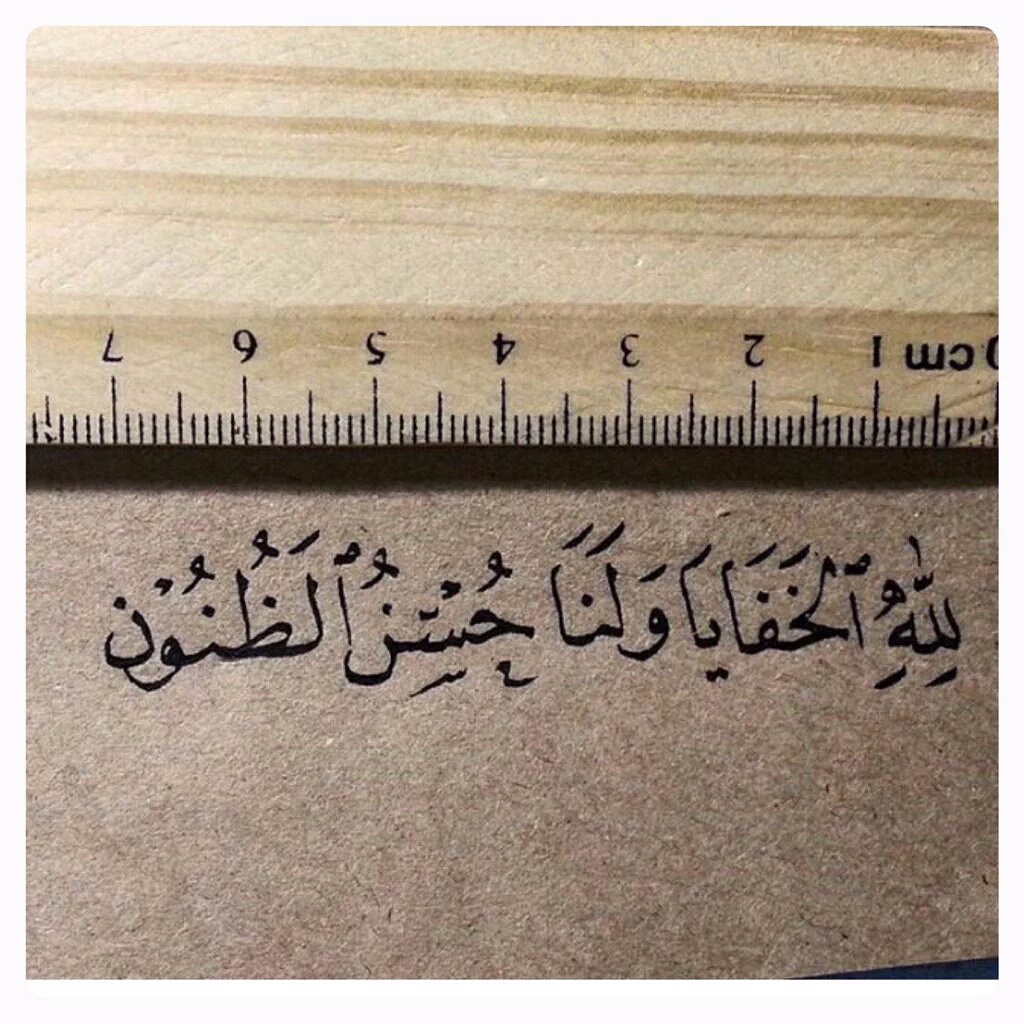 7 6 5 4 3 2 1 cm 0
لِلَّهِ ٱلْخَفَايَا وَلَنَا حُسْنُ ٱلظُّنُونْ